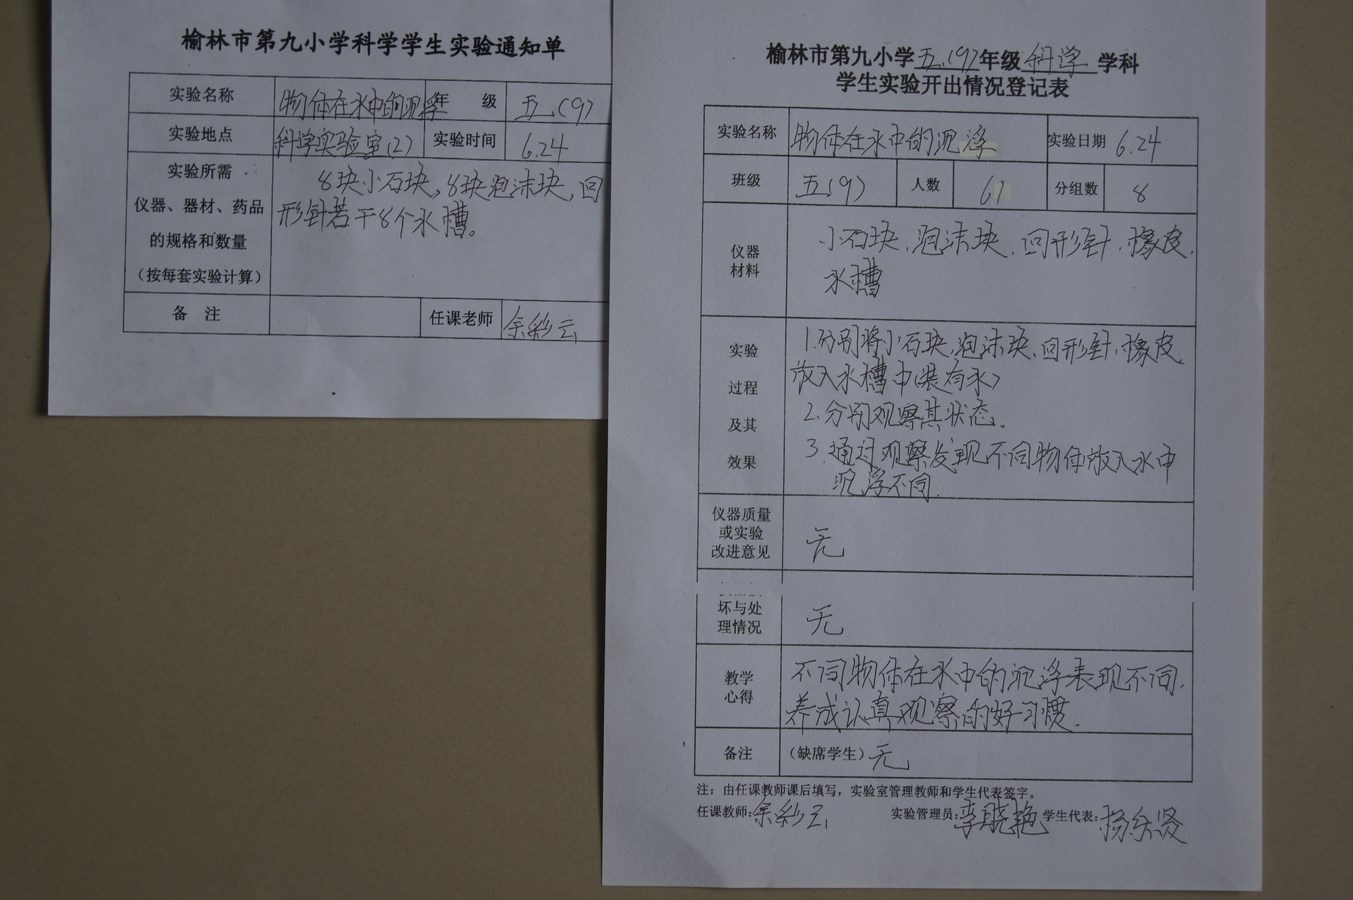 榆林市第九小学科学学生实验通知单
实验名称 物体在水中的沉浮 年 级 五(9)
实验地点 科学实验室(2) 实验时间 6.24
实验所需
仪器、器材、药品
的规格和数量
(按每套实验计算)
8块小石块,8块泡沫块,回
形针若干8个水槽。
备 注 任课老师 余彩云
榆林市第九小学五(9)年级科学学科
学生实验开出情况登记表
实验名称 物体在水中的沉浮 实验日期 6.24
班级 五(9) 人数 61 分组数 8
仪器
材料
小石块、泡沫块、回形针、橡皮、
水槽
实验
过程
及其
效果
1.分别将小石块、泡沫块、回形针、橡皮
放入水槽中(装有水)
2.分别观察其状态.
3.通过观察发现不同物体放入水中
沉浮不同.
仪器质量
或实验
改进意见
无
坏与处
理情况
无
教学
心得
不同物体在水中的沉浮表现不同.
养成认真观察的好习惯.
备注 (缺席学生) 无
注:由任课教师课后填写,实验室管理教师和学生代表签字。
任课教师:余彩云 实验管理员:李晓艳 学生代表:杨